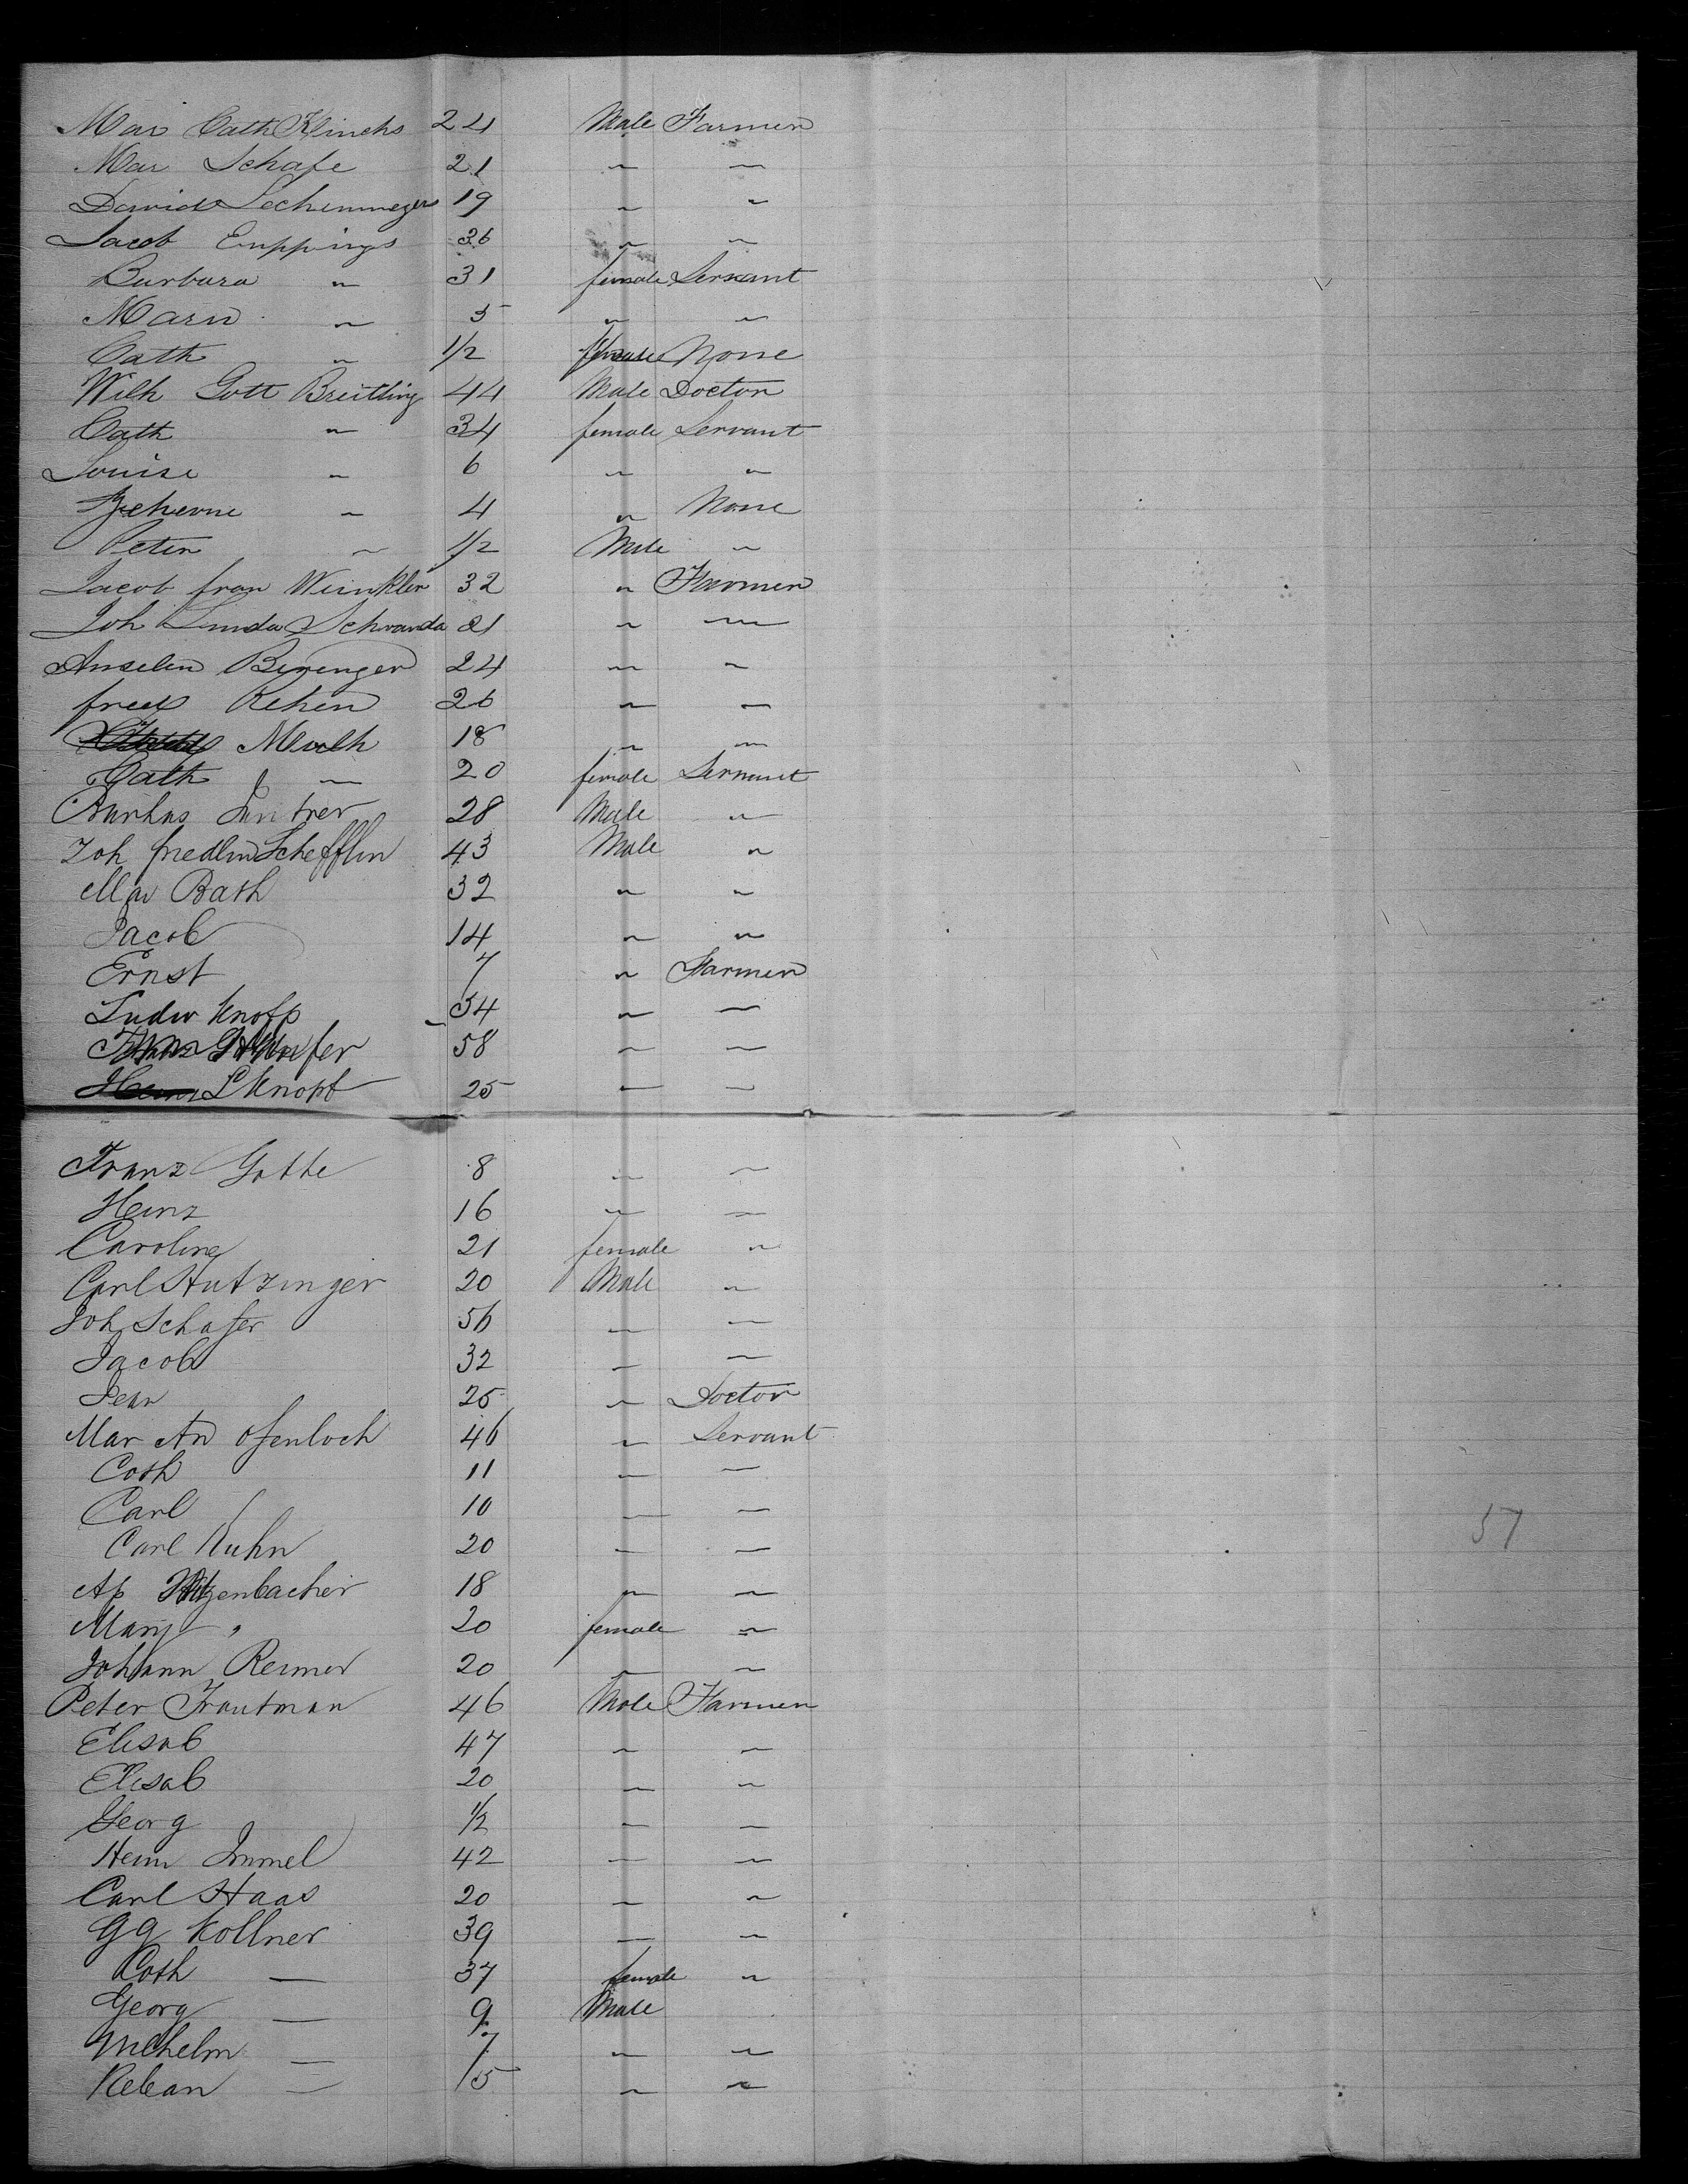 Mar Cath Klinchs 24 Male Farmer
Mar Schafe 21 " "
David Lechenmeyer 19 " "
Jacob Euppings 36 " "
Burbara " 31 female Servant
Marn " 5 " "
Cath " 1/2 female None
Wilh Gott Breitling 44 Male Doctor
Cath " 34 female Servant
Louise " 6 " "
" 4 " None
Peter " 1/2 Male "
Jacob fran Winkler 32 " Farmer
Joh Linda Schwanda 21 " "
Anselm Berenger 24 " "
fred Rehen 26 " "
18 " "
Cath " 20 female Servant
28 Male "
Joh fredlin Schefflin 43 Male "
Mar Bath 32 " "
Jacob 14 " "
Ernst 7 " Farmer
Ludw Knopp 54 " "
58 " "
L Knopf 25 " "
Franz Gotte 8 " "
Heinz 16 " "
Caroline 21 female "
Carl Hutzinger 20 Male "
Joh Schafer 56 " "
Jacob 32 " "
Jean 25 " Doctor
Mar An Ofenloch 46 " Servant
Cath 11 " "
Carl 10 " "
Carl Kuhn 20 " "
57
Ap 18 " "
Mary " 20 female "
Johann Reimer 20 " "
Peter Trautman 46 Male Farmer
Elisab 47 " "
Elisab 20 " "
Georg 1/2 " "
Henn Immel 42 " "
Carl Haas 20 " "
GG Kollner 39 " "
Cath — 37 female "
Georg — 9 Male
Wilhelm — 7 " "
— 15 " "